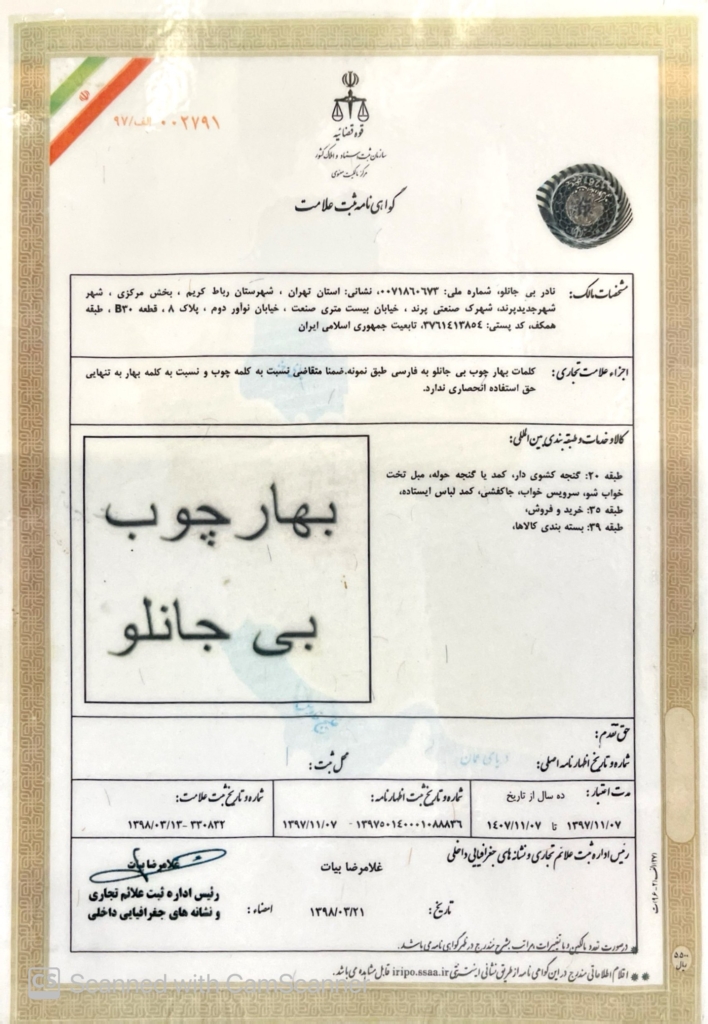 ۰۰۲۷۹۱ الف/۹۷
قوه قضائیه
سازمان ثبت اسناد و املاک کشور
مرکز مالکیت معنوی
گواهی نامه ثبت علامت
مشخصات مالک: نادر بی جانلو، شماره ملی: ۰۰۷۱۸۶۰۶۷۳، نشانی: استان تهران ، شهرستان رباط کریم ، بخش مرکزی ، شهر
شهرجدیدپرند، شهرک صنعتی پرند ، خیابان بیست متری صنعت ، خیابان نوآور دوم ، پلاک ۸ ، قطعه B۳۰ ، طبقه
همکف، کد پستی: ۳۷۶۱۴۱۳۸۵۴، تابعیت جمهوری اسلامی ایران
اجزاء علامت تجاری: کلمات بهار چوب بی جانلو به فارسی طبق نمونه.ضمنا متقاضی نسبت به کلمه چوب و نسبت به کلمه بهار به تنهایی
حق استفاده انحصاری ندارد.
کالا و خدمات و طبقه بندی بین المللی:
طبقه ۲۰: گنجه کشوی دار، کمد یا گنجه حوله، مبل تخت
خواب شو، سرویس خواب، جاکفشی، کمد لباس ایستاده،
طبقه ۳۵: خرید و فروش،
طبقه ۳۹: بسته بندی کالاها،
بهار چوب
بی جانلو
حق تقدم:
شماره و تاریخ اظهارنامه اصلی: محل ثبت:
دریای عمان
مدت اعتبار: ده سال از تاریخ
۱۳۹۷/۱۱/۰۷ تا ۱۴۰۷/۱۱/۰۷
شماره و تاریخ ثبت اظهارنامه:
۱۳۹۷۵۰۱۴۰۰۰۱۰۸۸۸۳۶ - ۱۳۹۷/۱۱/۰۷
شماره و تاریخ ثبت علامت:
۳۳۰۸۳۲ -۱۳۹۸/۰۳/۱۳
رئیس اداره ثبت علائم تجاری و نشانه های جغرافیایی داخلی
غلامرضا بیات
تاریخ: ۱۳۹۸/۰۳/۲۱ امضاء:
غلامرضا بیات
رئیس اداره ثبت علائم تجاری
و نشانه های جغرافیایی داخلی
در صورت تعدد مالکین و یا تغییرات مراتب بشرح مندرج در ظهر گواهی نامه می باشد.
اقلام اطلاعاتی مندرج در این گواهی نامه از طریق نشانی اینترنتی iripo.ssaa.ir قابل مشاهده می باشد.
۵۵۰۰
ریال
CS Scanned with CamScanner